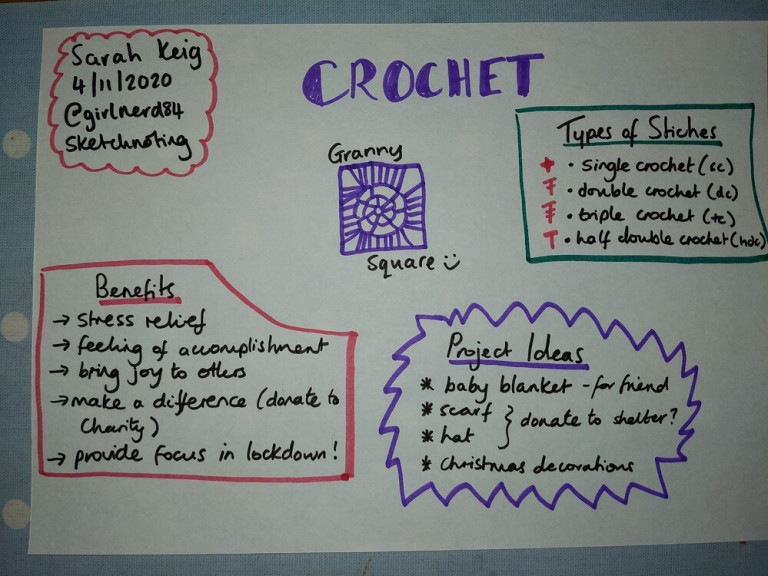 Sarah Keig
4/11/2020
@girlnerd84
Sketchnoting
CROCHET
Granny
Square
Types of Stiches
• single crochet (sc)
• double crochet (dc)
• triple crochet (tc)
• half double crochet (hdc)
Benefits
→ stress relief
→ feeling of accomplishment
→ bring joy to others
→ make a difference (donate to
charity)
→ provide focus in lockdown!
Project Ideas
* baby blanket - for friend
* scarf } donate to shelter?
* hat
* christmas decorations